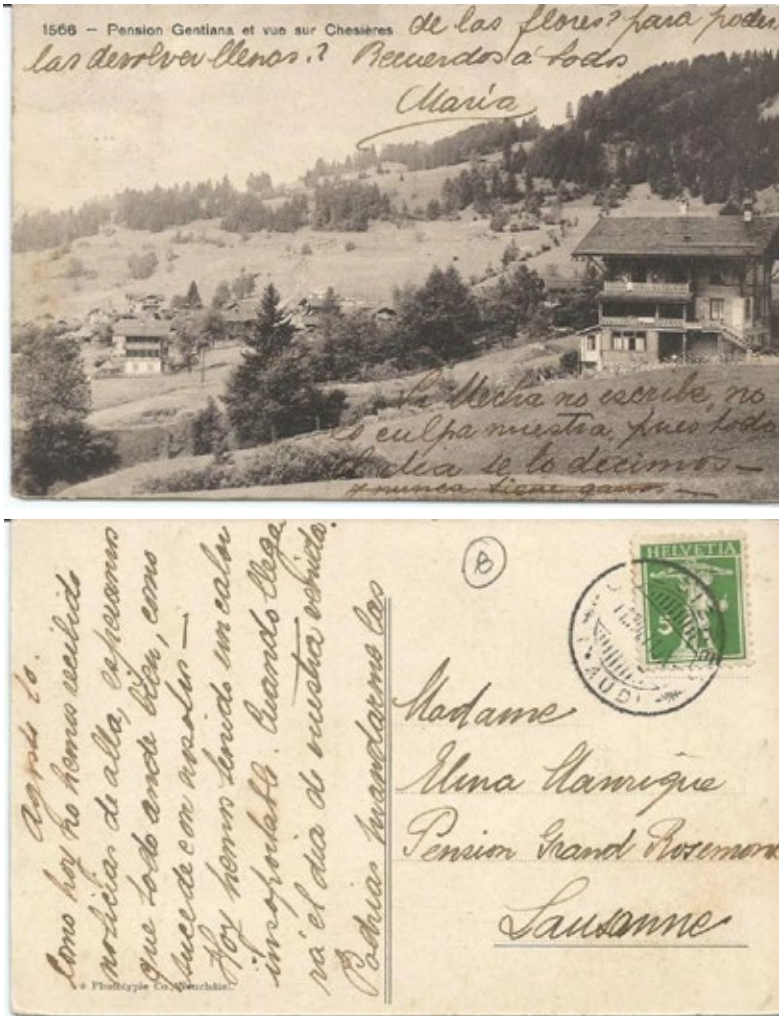 1566 – Pension Gentiana et vue sur Chesières
de las flores? para poder
las devolver llenas.? Recuerdos á todos
María
Si Mecha no escribe, no
es culpa nuestra, pues todo
el dia se lo decimos —
y nunca tiene ganas —
Agosto 10.
Como hoy no hemos recibido
noticias de alla, esperamos
que todo ande bien, como
sucede con nosotros —
Hoy hemos tenido un calor
insoportable. Cuando llega
rá el dia de vuestra venida?
Podrias mandarme las
Phototypie Co., Neuchâtel
8
HELVETIA
5
VAUD
Madame
Elina Manrique
Pension Grand Rosemont
Lausanne